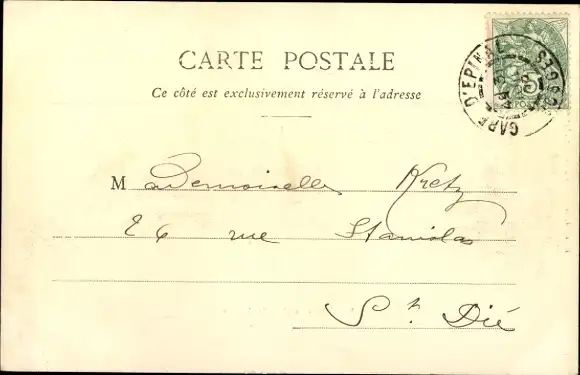 CARTE POSTALE
Ce côté est exclusivement réservé à l'adresse
Mademoiselle Kretz
26 rue Stanislas
St. Dié
GARE D'EPINAL
VOSGES
5
POSTES